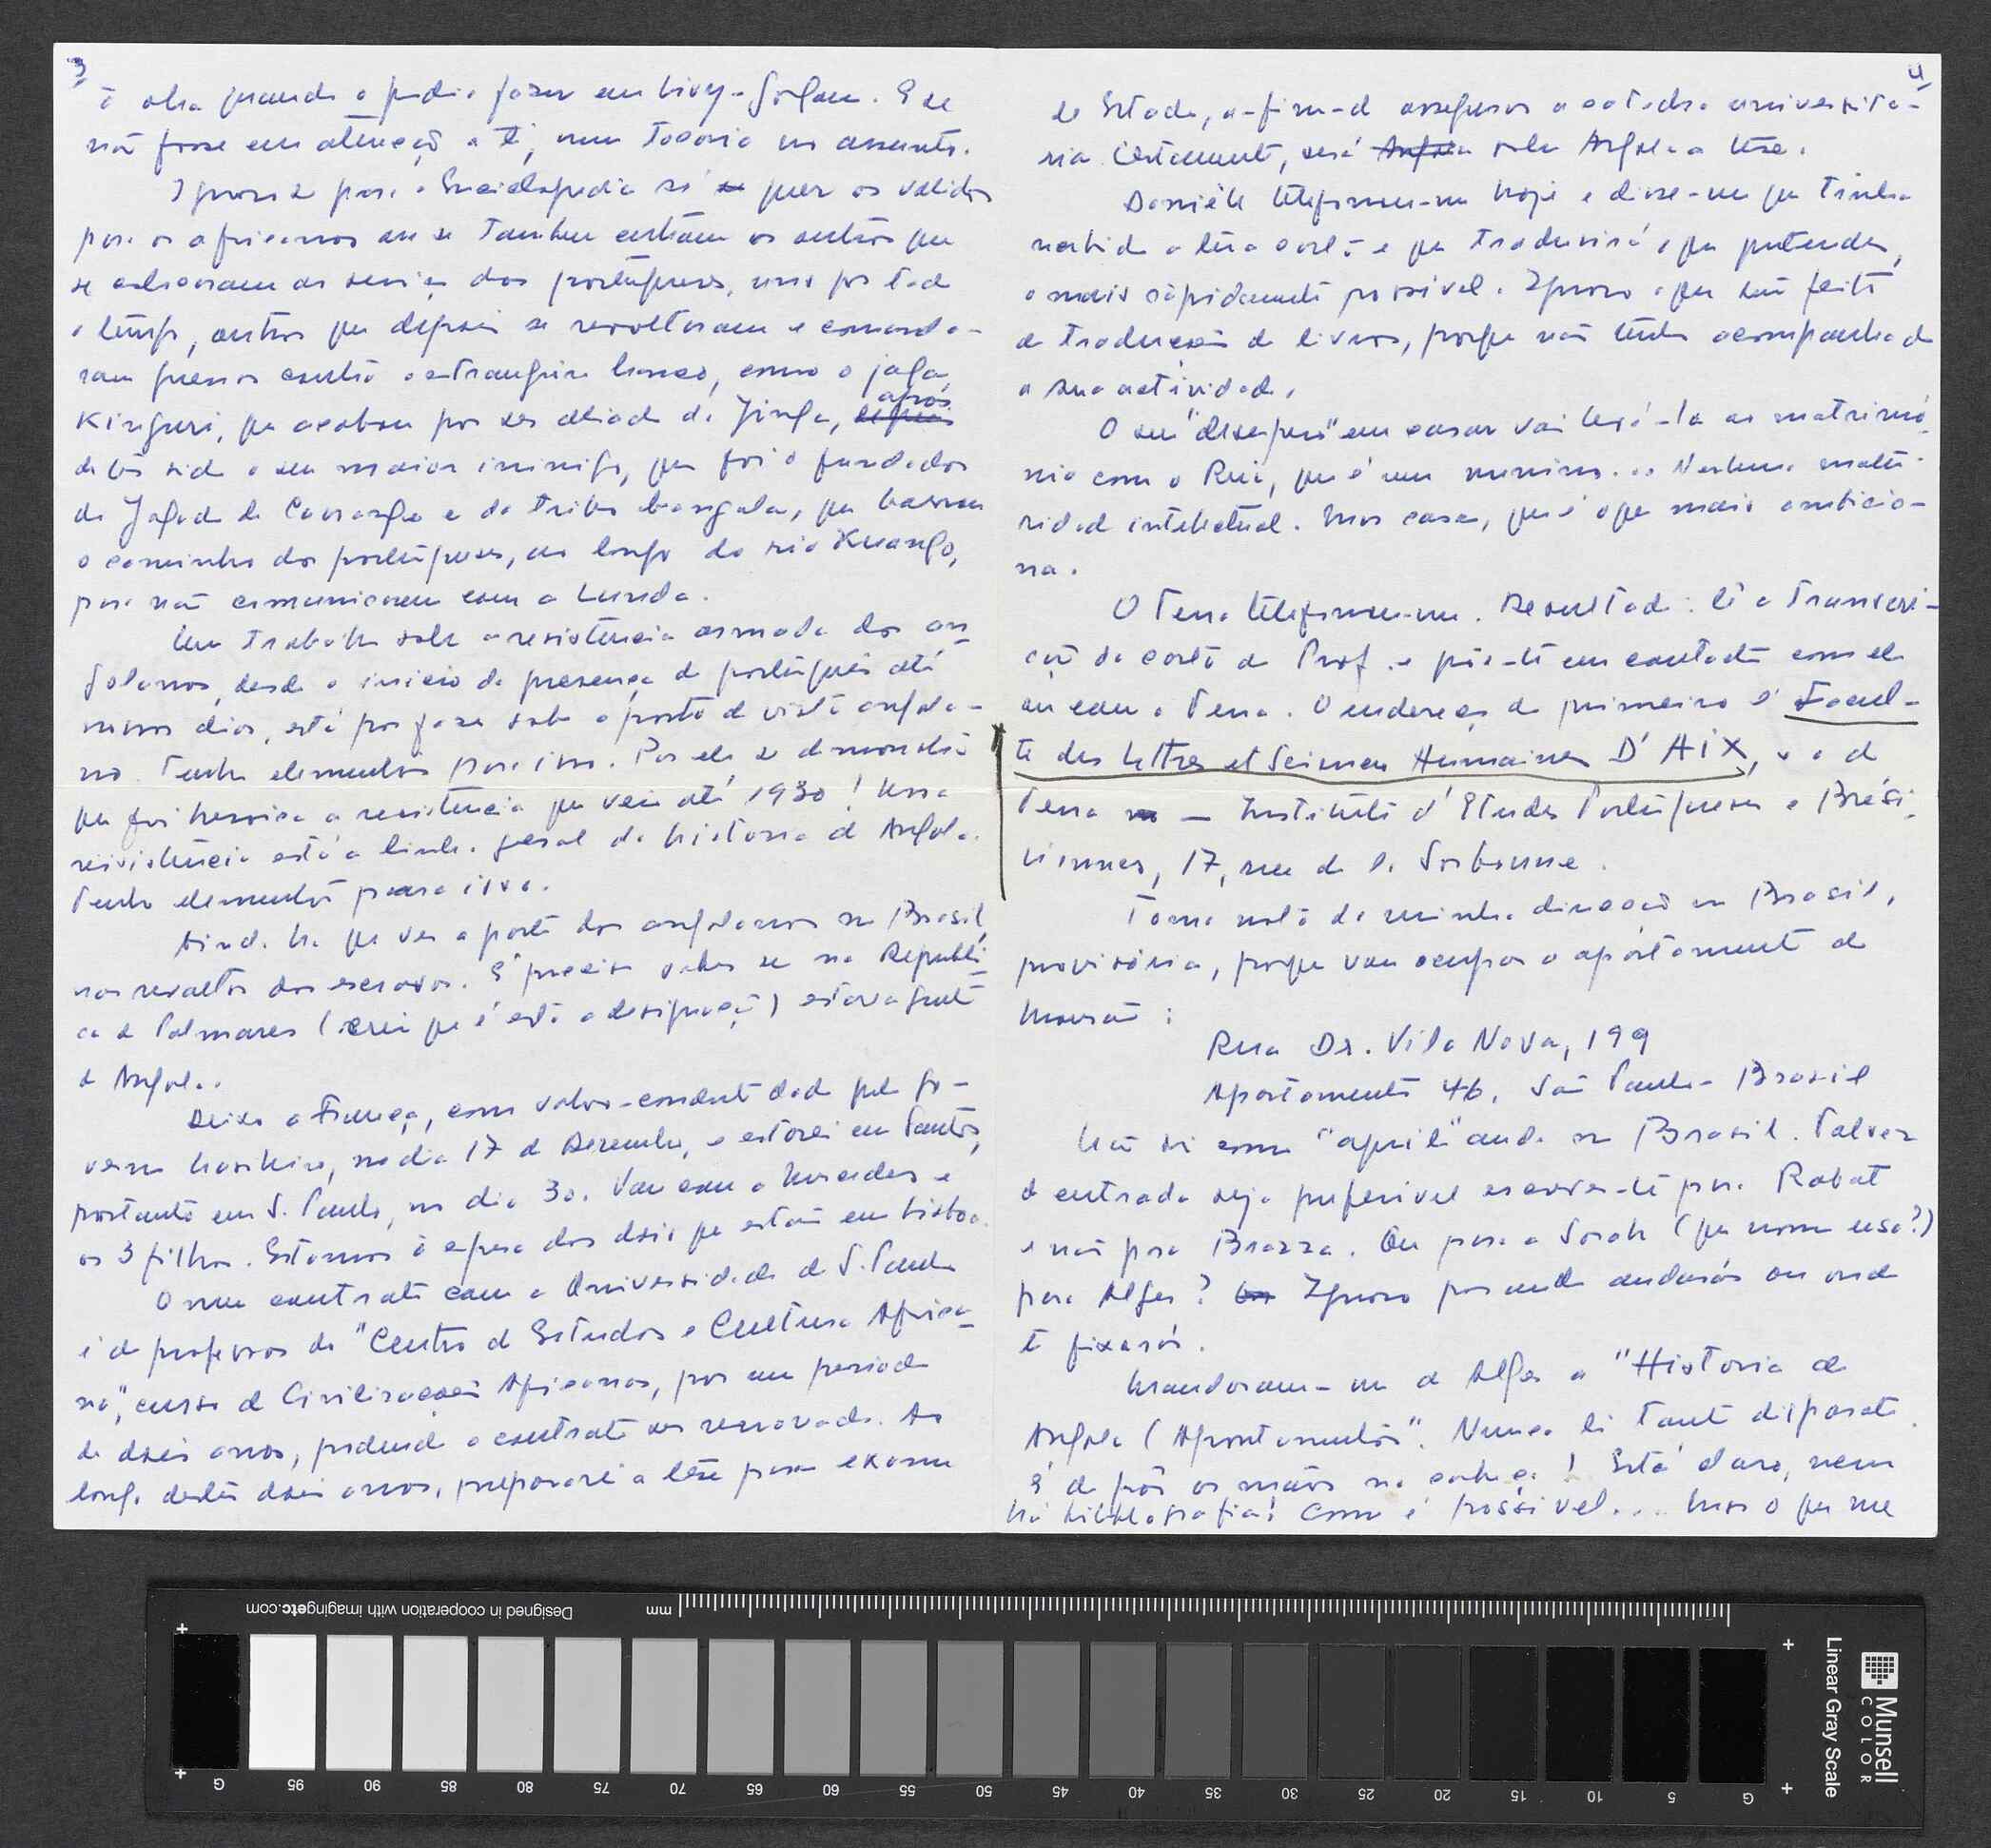 3
à obra quando o podia fazer em livre-Sorgem. E se
não fosse em atenção a ti, nem tocaria no assunto.
Ignoro se para a Enciclopedia só quer os validos
para os africanos ou se tambem entram os outros que
se colocaram ao serviço dos portugueses, uns por todo
o tempo, outros que depois se revoltaram e comanda-
ram guerras contra o estrangeiro branco, como o jaga
Kinguri, que acabou por ser aliado da Jinga, após
de ter sido o seu maior inimigo, que foi o fundador
do Jagado de Cassange e da tribu bangala, que barrou
o caminho dos portugueses, ao longo do rio Kuango,
para não comunicarem com a Lunda.
Um trabalho sobre a resistencia armada dos an-
golanos, desde o inicio da presença do português até
nossos dias, está por fazer sob o ponto de vista angola-
no. Tenho elementos para isso. Por ele se demonstra
que foi heroica a resistencia que veio até 1930! Nessa
resistencia está a linha geral da historia de Angola.
Tenho elementos para isso.
Ainda ha que ver a parte dos angolanos no Brasil,
nas revoltas dos escravos. É preciso saber se na Republi-
ca de Palmares (creio que é esta a designação) estava gente
de Angola.
Deixo a França, com salvo-conduto dado pelo go-
verno brasileiro, no dia 17 de Dezembro, e estarei em Santos,
portanto em S. Paulo, no dia 30. Vou com a Mercedes e
os 3 filhos. Estamos à espera dos dois que estão em Lisboa.
O meu contrato com a Universidade de S. Paulo
é de professor do "Centro de Estudos e Cultura Africa-
na", curso de Civilizações Africanas, por um periodo
de dois anos, podendo o contrato ser renovado. Ao
longo destes dois anos, prepararei a tese para exame
4
de Estado, a-fim-de assegurar a catedra universitá-
ria. Certamente, será sobre Angola a tese.
Danièle telefonou-me hoje e disse-me que tinha
recebido a tua carta e que traduzirá o que pretendes,
o mais rapidamente possivel. Ignoro o que tem feito
de tradução de livros, porque não tenho acompanhado
a sua actividade.
O seu "desespero" em casar vai levá-la ao matrimó-
nio com o Rui, que é um menino... Nenhuma matu-
ridade intelectual. Mas casa, que é o que mais ambicio-
na.
O Tena telefonou-me. Resultado: lê a transcri-
ção da carta do Prof. e põe-te em contacto com ele
ou com o Tena. O endereço do primeiro é Facul-
té des Lettres et Sciences Humaines D'AIX, e o do
Tena — Institute d'Etudes Portugueses e Brési-
liennes, 17, rue de la Sorbonne.
Toma nota da minha direcção no Brasil,
provisória, porque vou ocupar o apartamento do
Mourão:
Rua Dr. Vila Nova, 199
Apartamento 46, São Paulo - Brasil
Não sei como "aquilo" anda no Brasil. Talvez
de entrada seja preferivel escrever-te para Rabat
e não para Brazza. Ou para a Sarah (que nome usa?)
para Alger? Ignoro por onde andarás ou onde
te fixarás.
Mandaram-me de Alger a "Historia de
Angola (Apontamentos)". Nunca li tanto disparate.
É de pôr as mãos na cabeça! Está claro, nem
há bibliografia! Como é possivel... Mas o que me
Designed in cooperation with imagingetc.com
mm
G 95 90 85 80 75 70 65 60 55 50 45 40 35 30 25 20 15 10 5 G
Munsell
COLOR
Linear Gray Scale